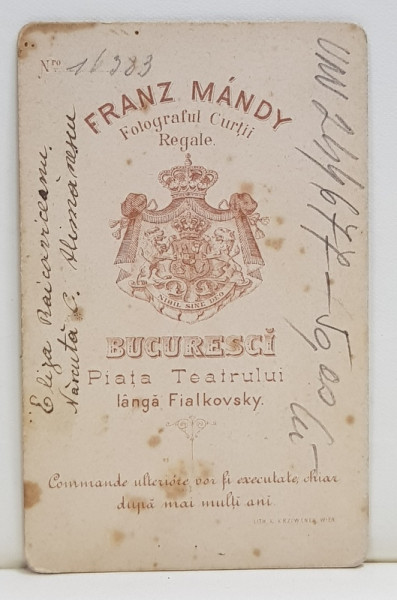 Nro 16383
FRANZ MÁNDY
Fotograful Curții
Regale.
NIHIL SINE DEO
BUCURESCĬ
Piața Teatrului
lângă Fialkovsky.
Commande ulterióre vor fi executate, chiar
după mai mulți ani.
Eliza Raicoviceanu.
Născută C. Alimanescu
50,00 lei